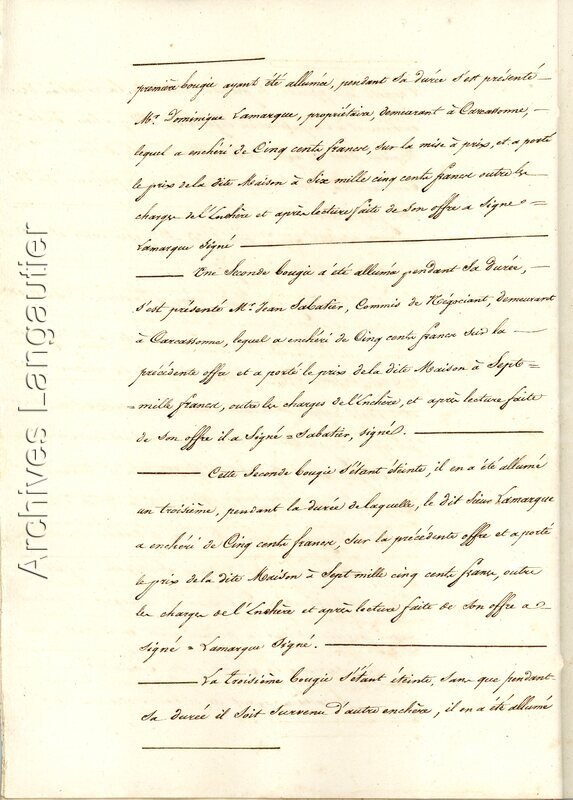 première bougie ayant été allumée, pendant sa durée s'est présenté —
Mr. Dominique Lamarque, propriétaire, demeurant à Carcassonne, —
lequel a enchéri de Cinq cents francs, sur la mise à prix, et a porté
le prix de la dite Maison à Six mille cinq cents francs outre les
charges de l'Enchère et après lecture faite de son offre a Signé =
Lamarque Signé —
— Une Seconde bougie a été allumée pendant sa durée, —
s'est présenté Mr. Jean Sabatier, Commis de Négociant, demeurant
à Carcassonne, lequel a enchéri de Cinq cents francs Sur la —
précédente offre et a porté le prix de la dite Maison à Sept =
= mille francs, outre les charges de l'Enchère, et après lecture faite
de son offre il a Signé = Sabatier, signé. —
— Cette Seconde bougie S'étant éteinte, il en a été allumé
un troisième, pendant la durée de laquelle, le dit Sieur Lamarque
a enchéri de Cinq cents francs, Sur la précédente offre et a porté
le prix de la dite Maison à Sept mille cinq cents francs, outre
les charges de l'Enchère et après lecture faite de son offre a =
signé = Lamarque Signé. —
— La troisième bougie S'étant éteinte, sans que pendant
sa durée il soit survenu d'autre enchère, il en a été allumé
Archives Langautier